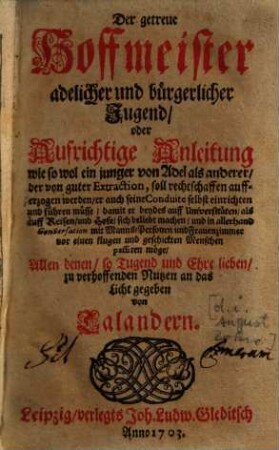 Der getreue
Hoffmeister
adelicher und bürgerlicher
Jugend/
oder
Aufrichtige Anleitung
wie so wol ein junger von Adel als anderer/
der von guter Extraction, soll rechtschaffen auff-
erzogen werden/er auch seine Conduite selbst einrichten
und führen müsse/ damit er beydes auff Universitäten/ als
auff Reisen/und Hofe/ sich beliebt machen/ und in allerhand
Conversation mit Manns/Personen und Frauenzimmer
vor einen klugen und geschickten Menschen
passieren möge/
Allen denen/ so Tugend und Ehre lieben/
zu verhoffenden Nutzen an das
Licht gegeben
von
Talandern.
August
Leipzig/verlegts Joh. Ludw. Gleditsch
Anno 1703.